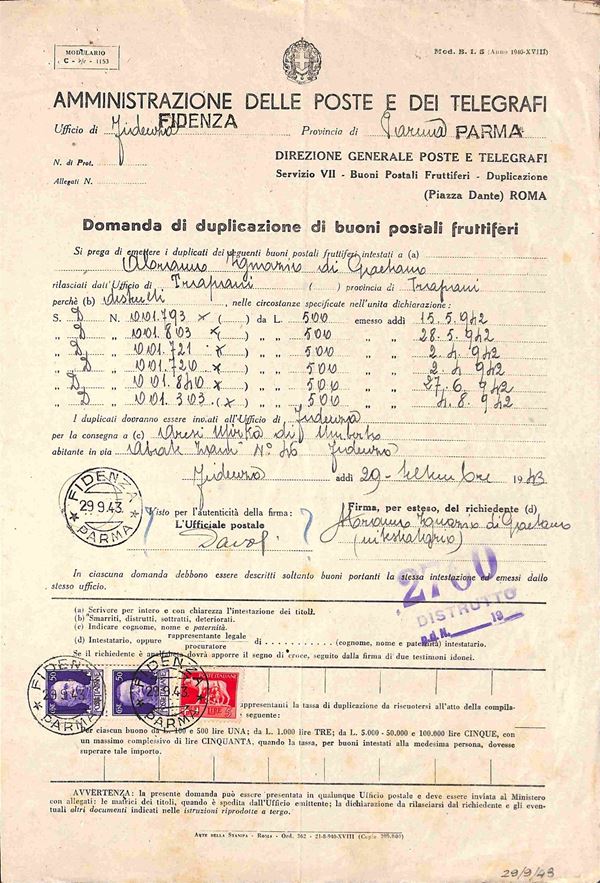 MODULARIO
C - 1153
Mod. B. I. 5 (Anno 1940-XVIII)
AMMINISTRAZIONE DELLE POSTE E DEI TELEGRAFI
Ufficio di Fidenza FIDENZA Provincia di Parma PARMA
N. di Prot.
Allegati N.
DIREZIONE GENERALE POSTE E TELEGRAFI
Servizio VII - Buoni Postali Fruttiferi - Duplicazione
(Piazza Dante) ROMA
Domanda di duplicazione di buoni postali fruttiferi
Si prega di emettere i duplicati dei seguenti buoni postali fruttiferi intestati a (a)
Ignazio di Gaetano
rilasciati dall'Ufficio di Trapani ( ) provincia di Trapani
perchè (b) distrutti, nelle circostanze specificate nell'unita dichiarazione:
S. D N. 001.793 x ( ) da L. 500 emesso addì 15.5.942
„ D „ 001.803 (x) „ „ 500 „ „ 28.5.942
„ D „ 001.721 ( ) „ „ 500 „ „ 2.4.942
„ D „ 001.720 ( ) „ „ 500 „ „ 2.4.942
„ D „ 001.840 x ( ) „ „ 500 „ „ 27.6.942
„ D „ 001.303 (x) „ „ 500 „ „ 4.8.942
I duplicati dovranno essere inviati all'Ufficio di Fidenza
per la consegna a (c) di Umberto
abitante in via N° 46 Fidenza
Fidenza addì 29 Settembre 1943
FIDENZA
29.9.43.
* PARMA *
Visto per l'autenticità della firma:
L'Ufficiale postale
Firma, per esteso, del richiedente (d)
Ignazio di Gaetano
In ciascuna domanda debbono essere descritti soltanto buoni portanti la stessa intestazione ed emessi dallo
stesso ufficio.
2760
DISTRUTTO
19
(a) Scrivere per intero e con chiarezza l'intestazione dei titoli.
(b) Smarriti, distrutti, sottratti, deteriorati.
(c) Indicare cognome, nome e paternità.
(d) Intestatario, oppure rappresentante legale procuratore di (cognome, nome e paternità) intestatario.
Se il richiedente è analfabeta dovrà apporre il segno di croce, seguito dalla firma di due testimoni idonei.
FIDENZA
29.9.43.
* PARMA *
50
50
FIDENZA
29.9.43.
* PARMA *
POSTE ITALIANE
LIRE
rappresentanti la tassa di duplicazione da riscuotersi all'atto della compila-
seguente:
Per ciascun buono da L. 100 e 500 lire UNA; da L. 1.000 lire TRE; da L. 5.000 - 50.000 e 100.000 lire CINQUE, con
un massimo complessivo di lire CINQUANTA, quando la tassa, per buoni intestati alla medesima persona, dovesse
superare tale importo.
AVVERTENZA: la presente domanda può essere presentata in qualunque Ufficio postale e deve essere inviata al Ministero
con allegati: le matrici dei titoli, quando è spedita dall'Ufficio emittente; la dichiarazione da rilasciarsi dal richiedente e gli even-
tuali altri documenti indicati nelle istruzioni riprodotte a tergo.
ARTE DELLA STAMPA - ROMA - Ord. 362 - 21-8-940-XVIII
29/9/43